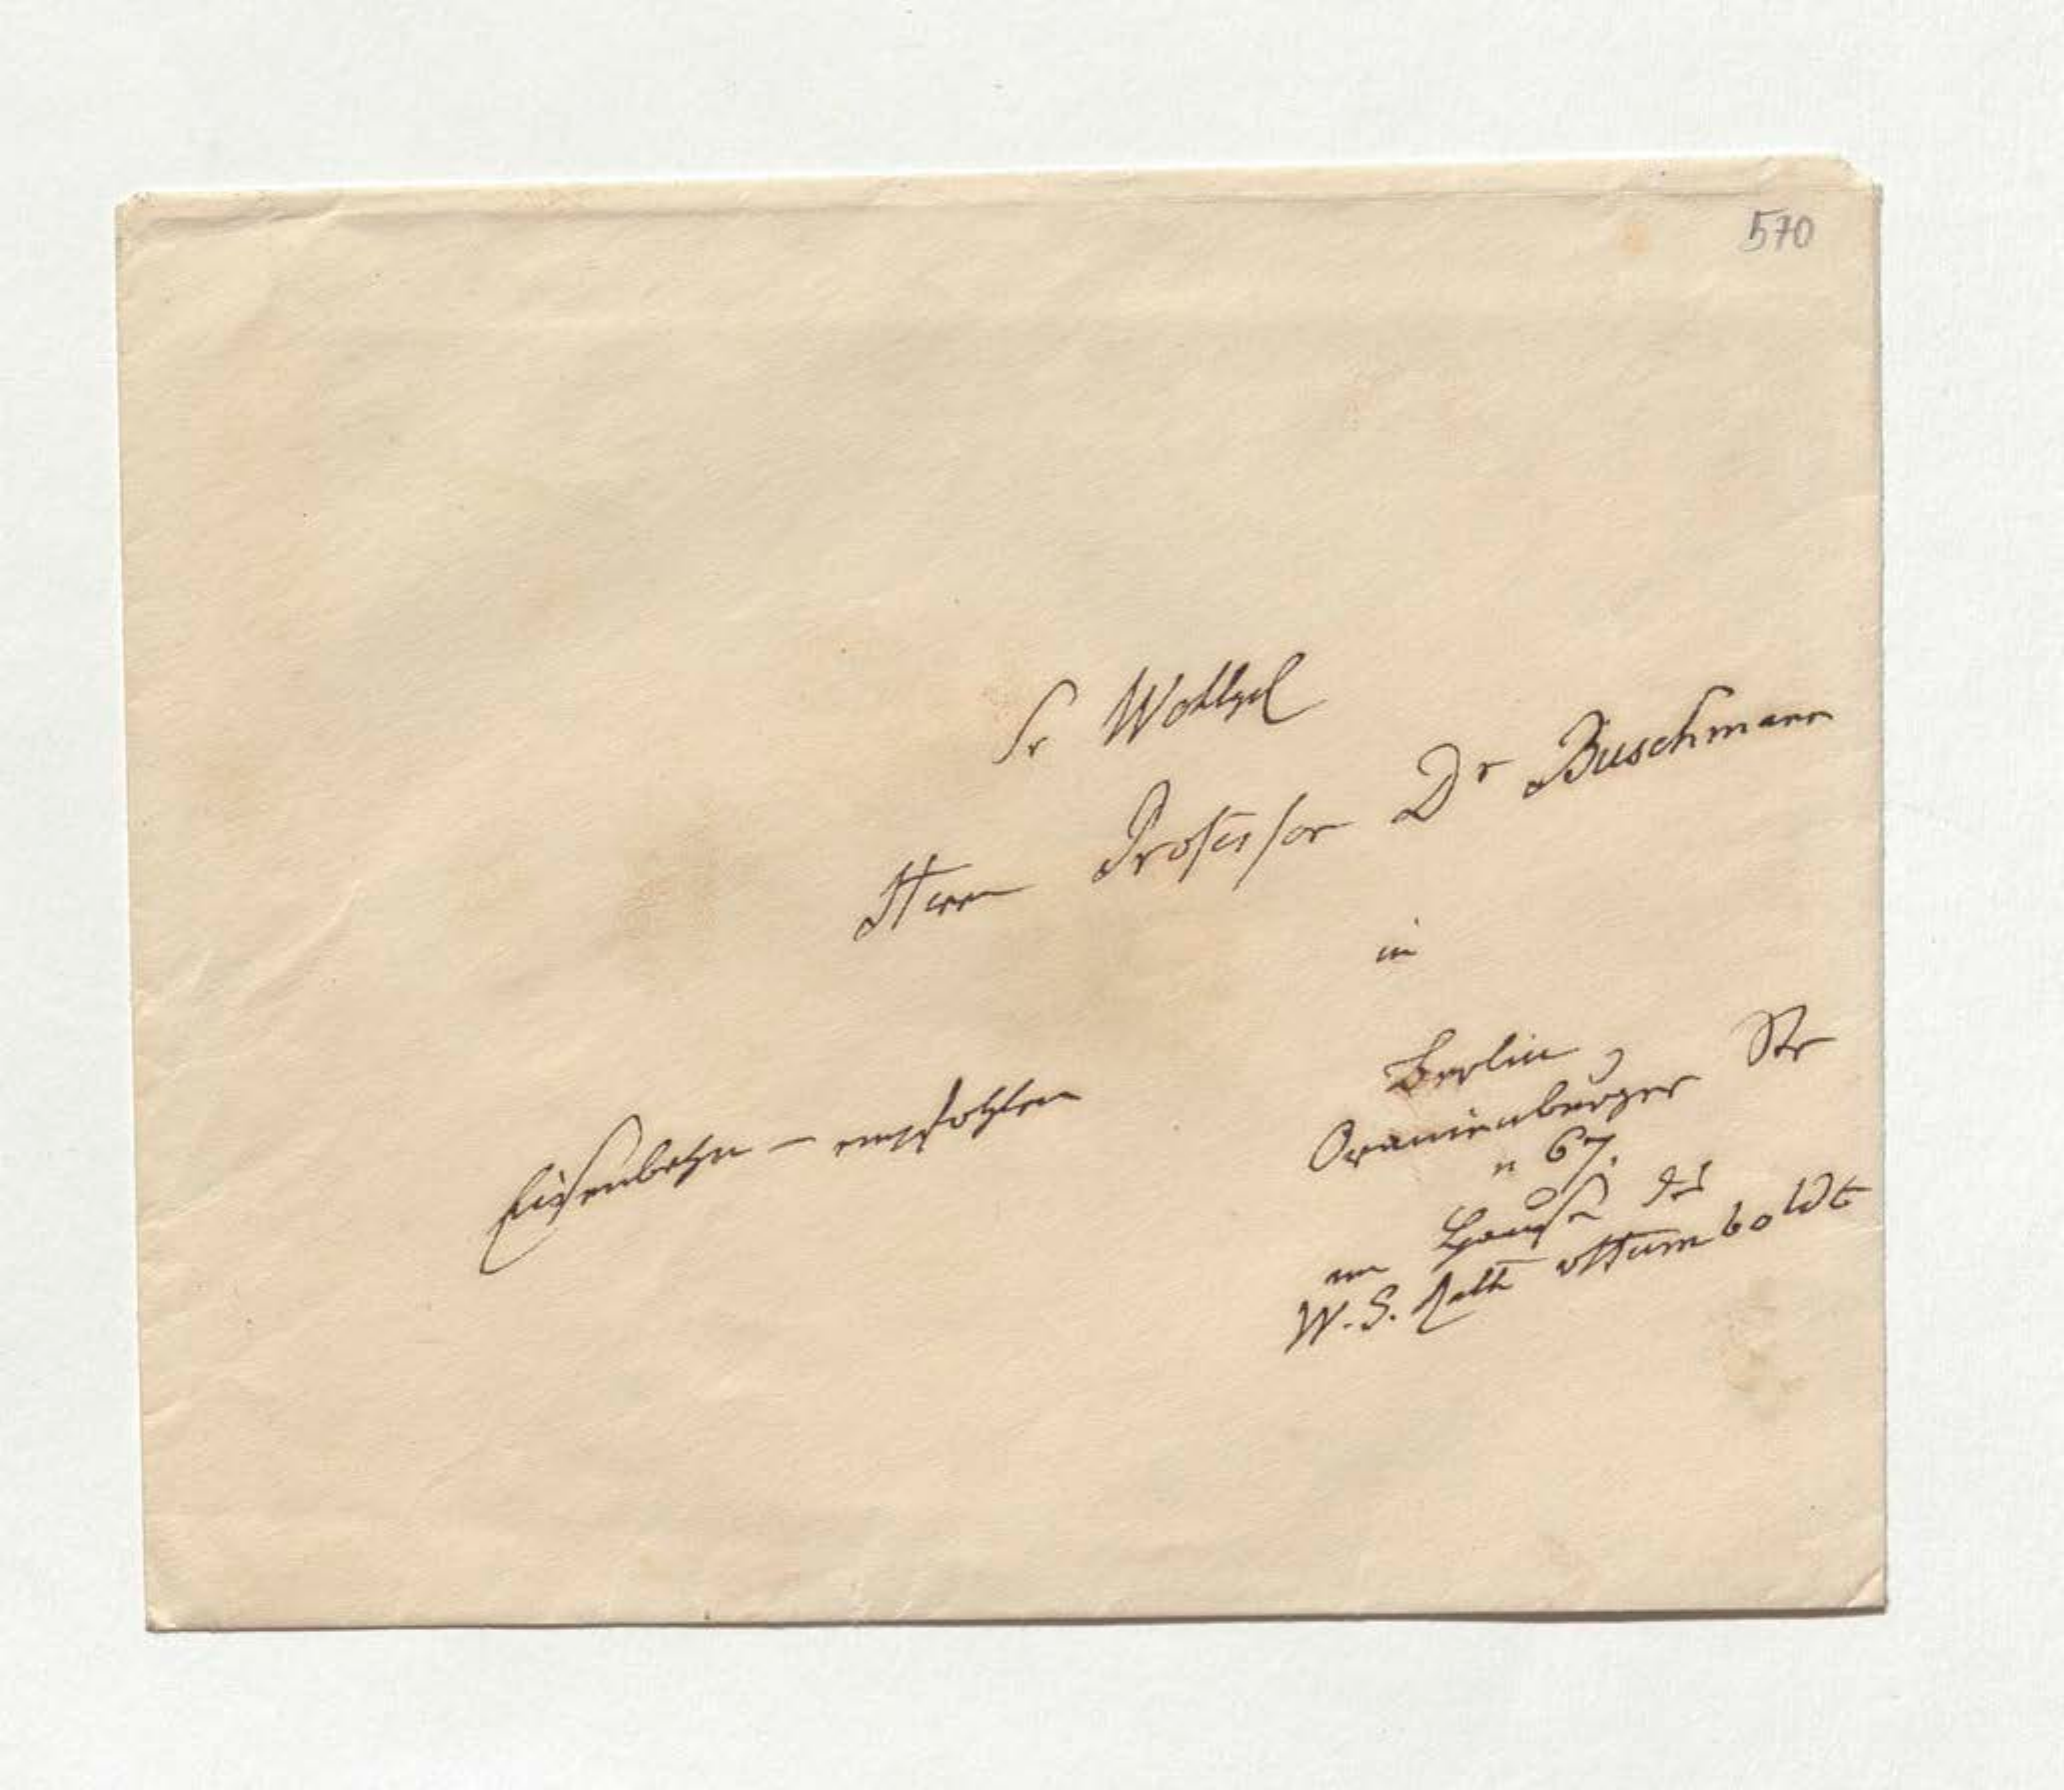 570
Sr Wohlgel
Herrn Professor Dr Buschmann
in
Berlin,
Oranienburger Str
n 67.
im Hause des
W. G. Rath v Humboldt
Eisenbahn – empfohlen